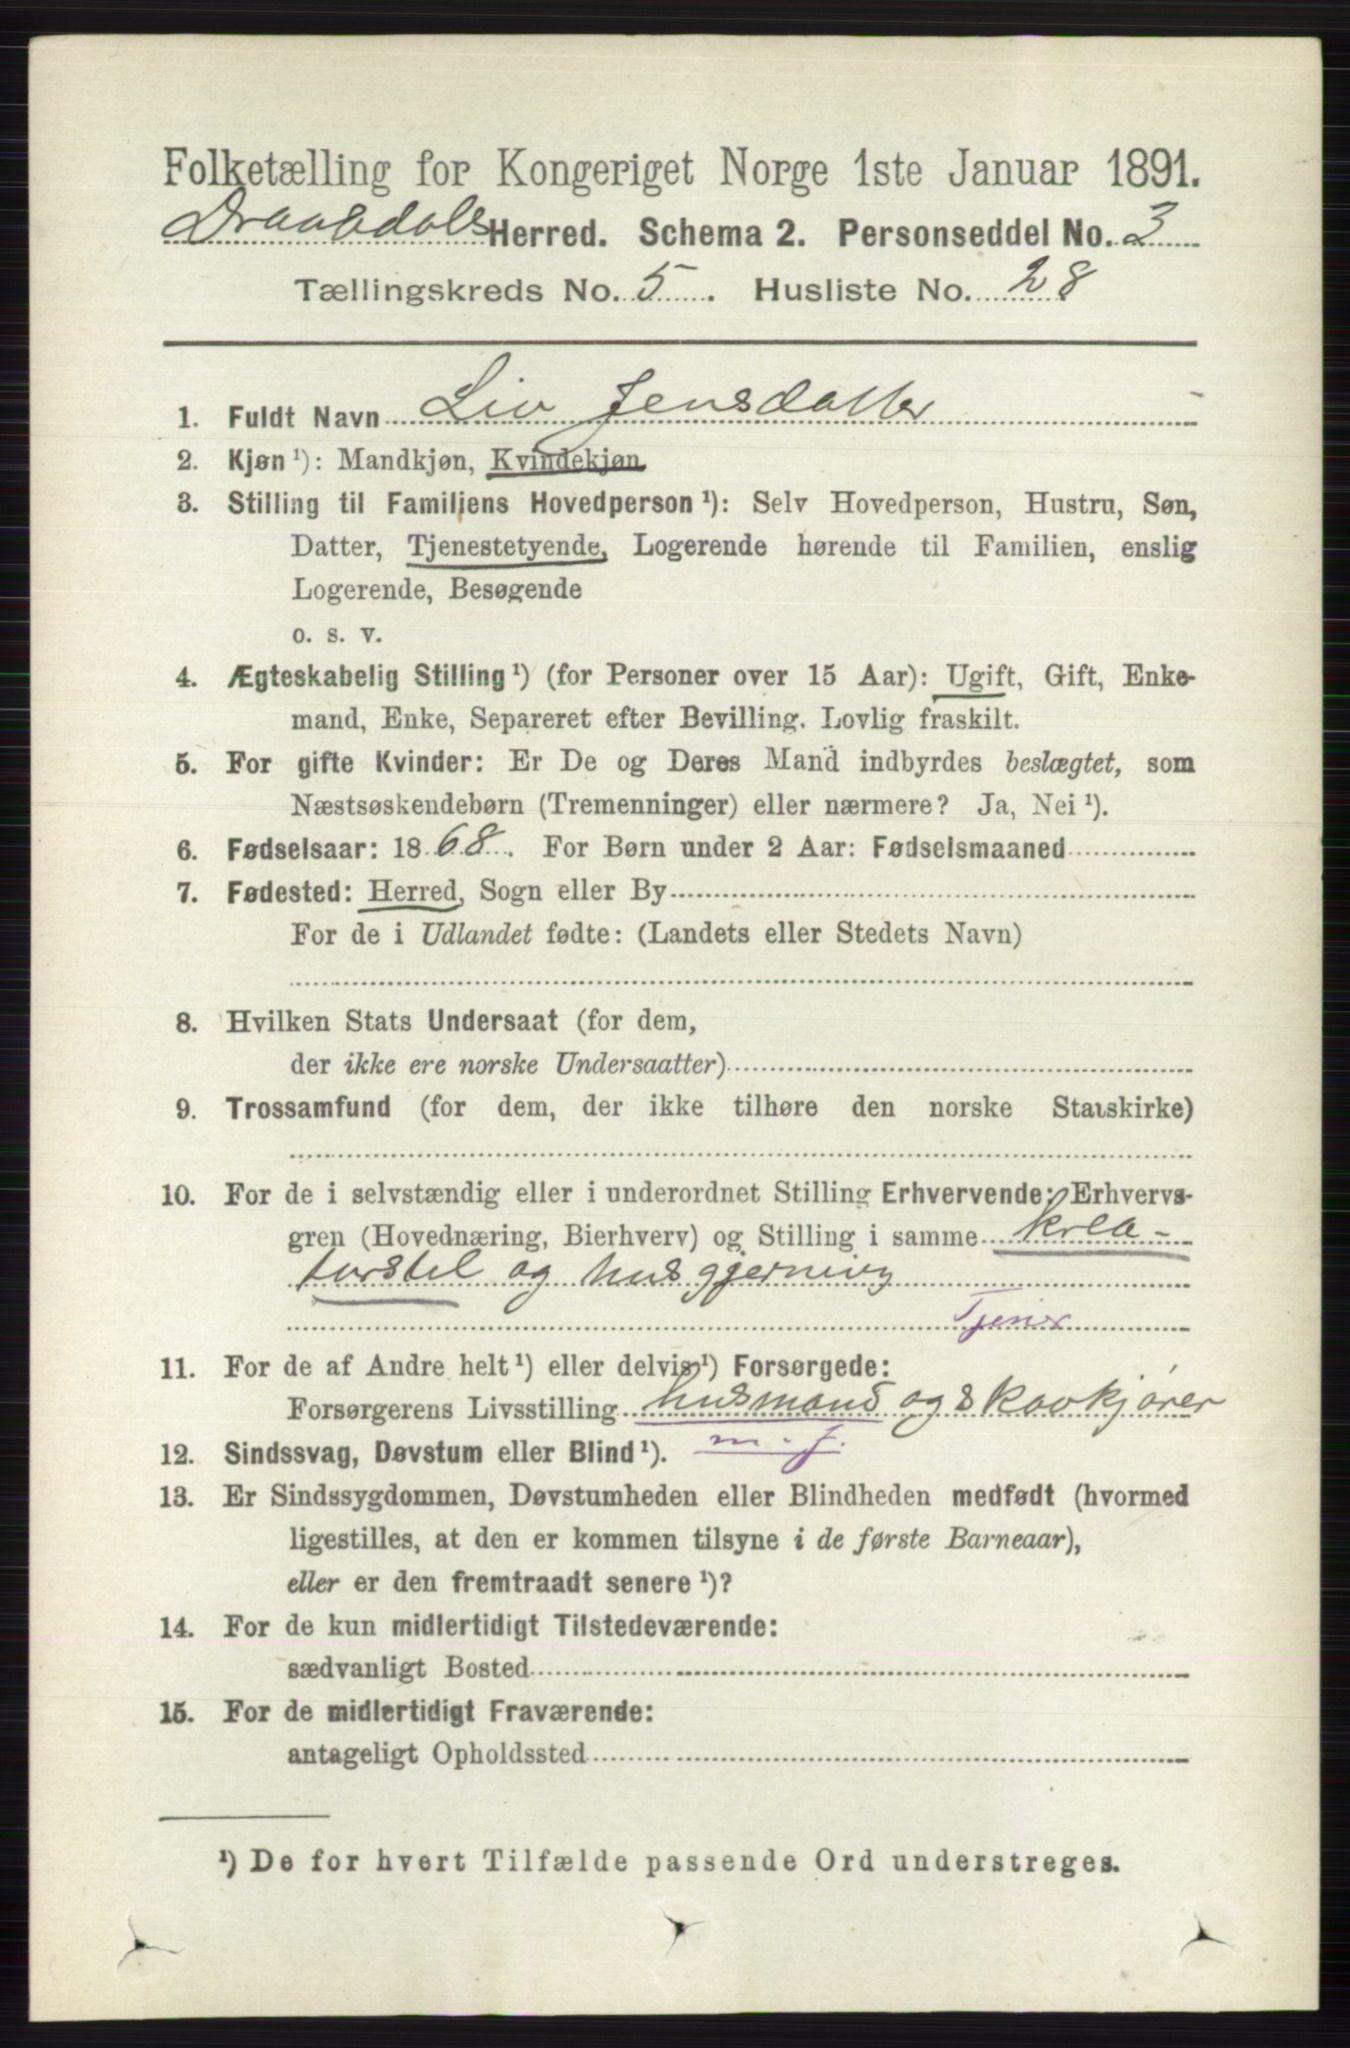 Folketælling for Kongeriget Norge 1ste Januar 1891.
Draabdals Herred. Schema 2. Personseddel No. 3
Tællingskreds No. 5. Husliste No. 28
1. Fuldt Navn Liv Jensdatter
2. Kjøn ¹): Mandkjøn, Kvindekjøn
3. Stilling til Familiens Hovedperson ¹): Selv Hovedperson, Hustru, Søn,
Datter, Tjenestetyende, Logerende hørende til Familien, enslig
Logerende, Besøgende
o. s. v.
4. Ægteskabelig Stilling ¹) (for Personer over 15 Aar): Ugift, Gift, Enke-
mand, Enke, Separeret efter Bevilling. Lovlig fraskilt.
5. For gifte Kvinder: Er De og Deres Mand indbyrdes beslægtet, som
Næstsøskendebørn (Tremenninger) eller nærmere? Ja, Nei ¹).
6. Fødselsaar: 1868. For Børn under 2 Aar: Fødselsmaaned
7. Fødested: Herred, Sogn eller By
For de i Udlandet fødte: (Landets eller Stedets Navn)
8. Hvilken Stats Undersaat (for dem,
der ikke ere norske Undersaatter)
9. Trossamfund (for dem, der ikke tilhøre den norske Statskirke)
10. For de i selvstændig eller i underordnet Stilling Erhvervende: Erhvervs-
gren (Hovednæring, Bierhverv) og Stilling i samme krea-
turstel og husgjerning
Tjener
11. For de af Andre helt ¹) eller delvis ¹) Forsørgede:
Forsørgerens Livsstilling husmand og skovkjører
m. j.
12. Sindssvag, Døvstum eller Blind ¹).
13. Er Sindssygdommen, Døvstumheden eller Blindheden medfødt (hvormed
ligestilles, at den er kommen tilsyne i de første Barneaar),
eller er den fremtraadt senere ¹)?
14. For de kun midlertidigt Tilstedeværende:
sædvanligt Bosted
15. For de midlertidigt Fraværende:
antageligt Opholdssted
¹) De for hvert Tilfælde passende Ord understreges.